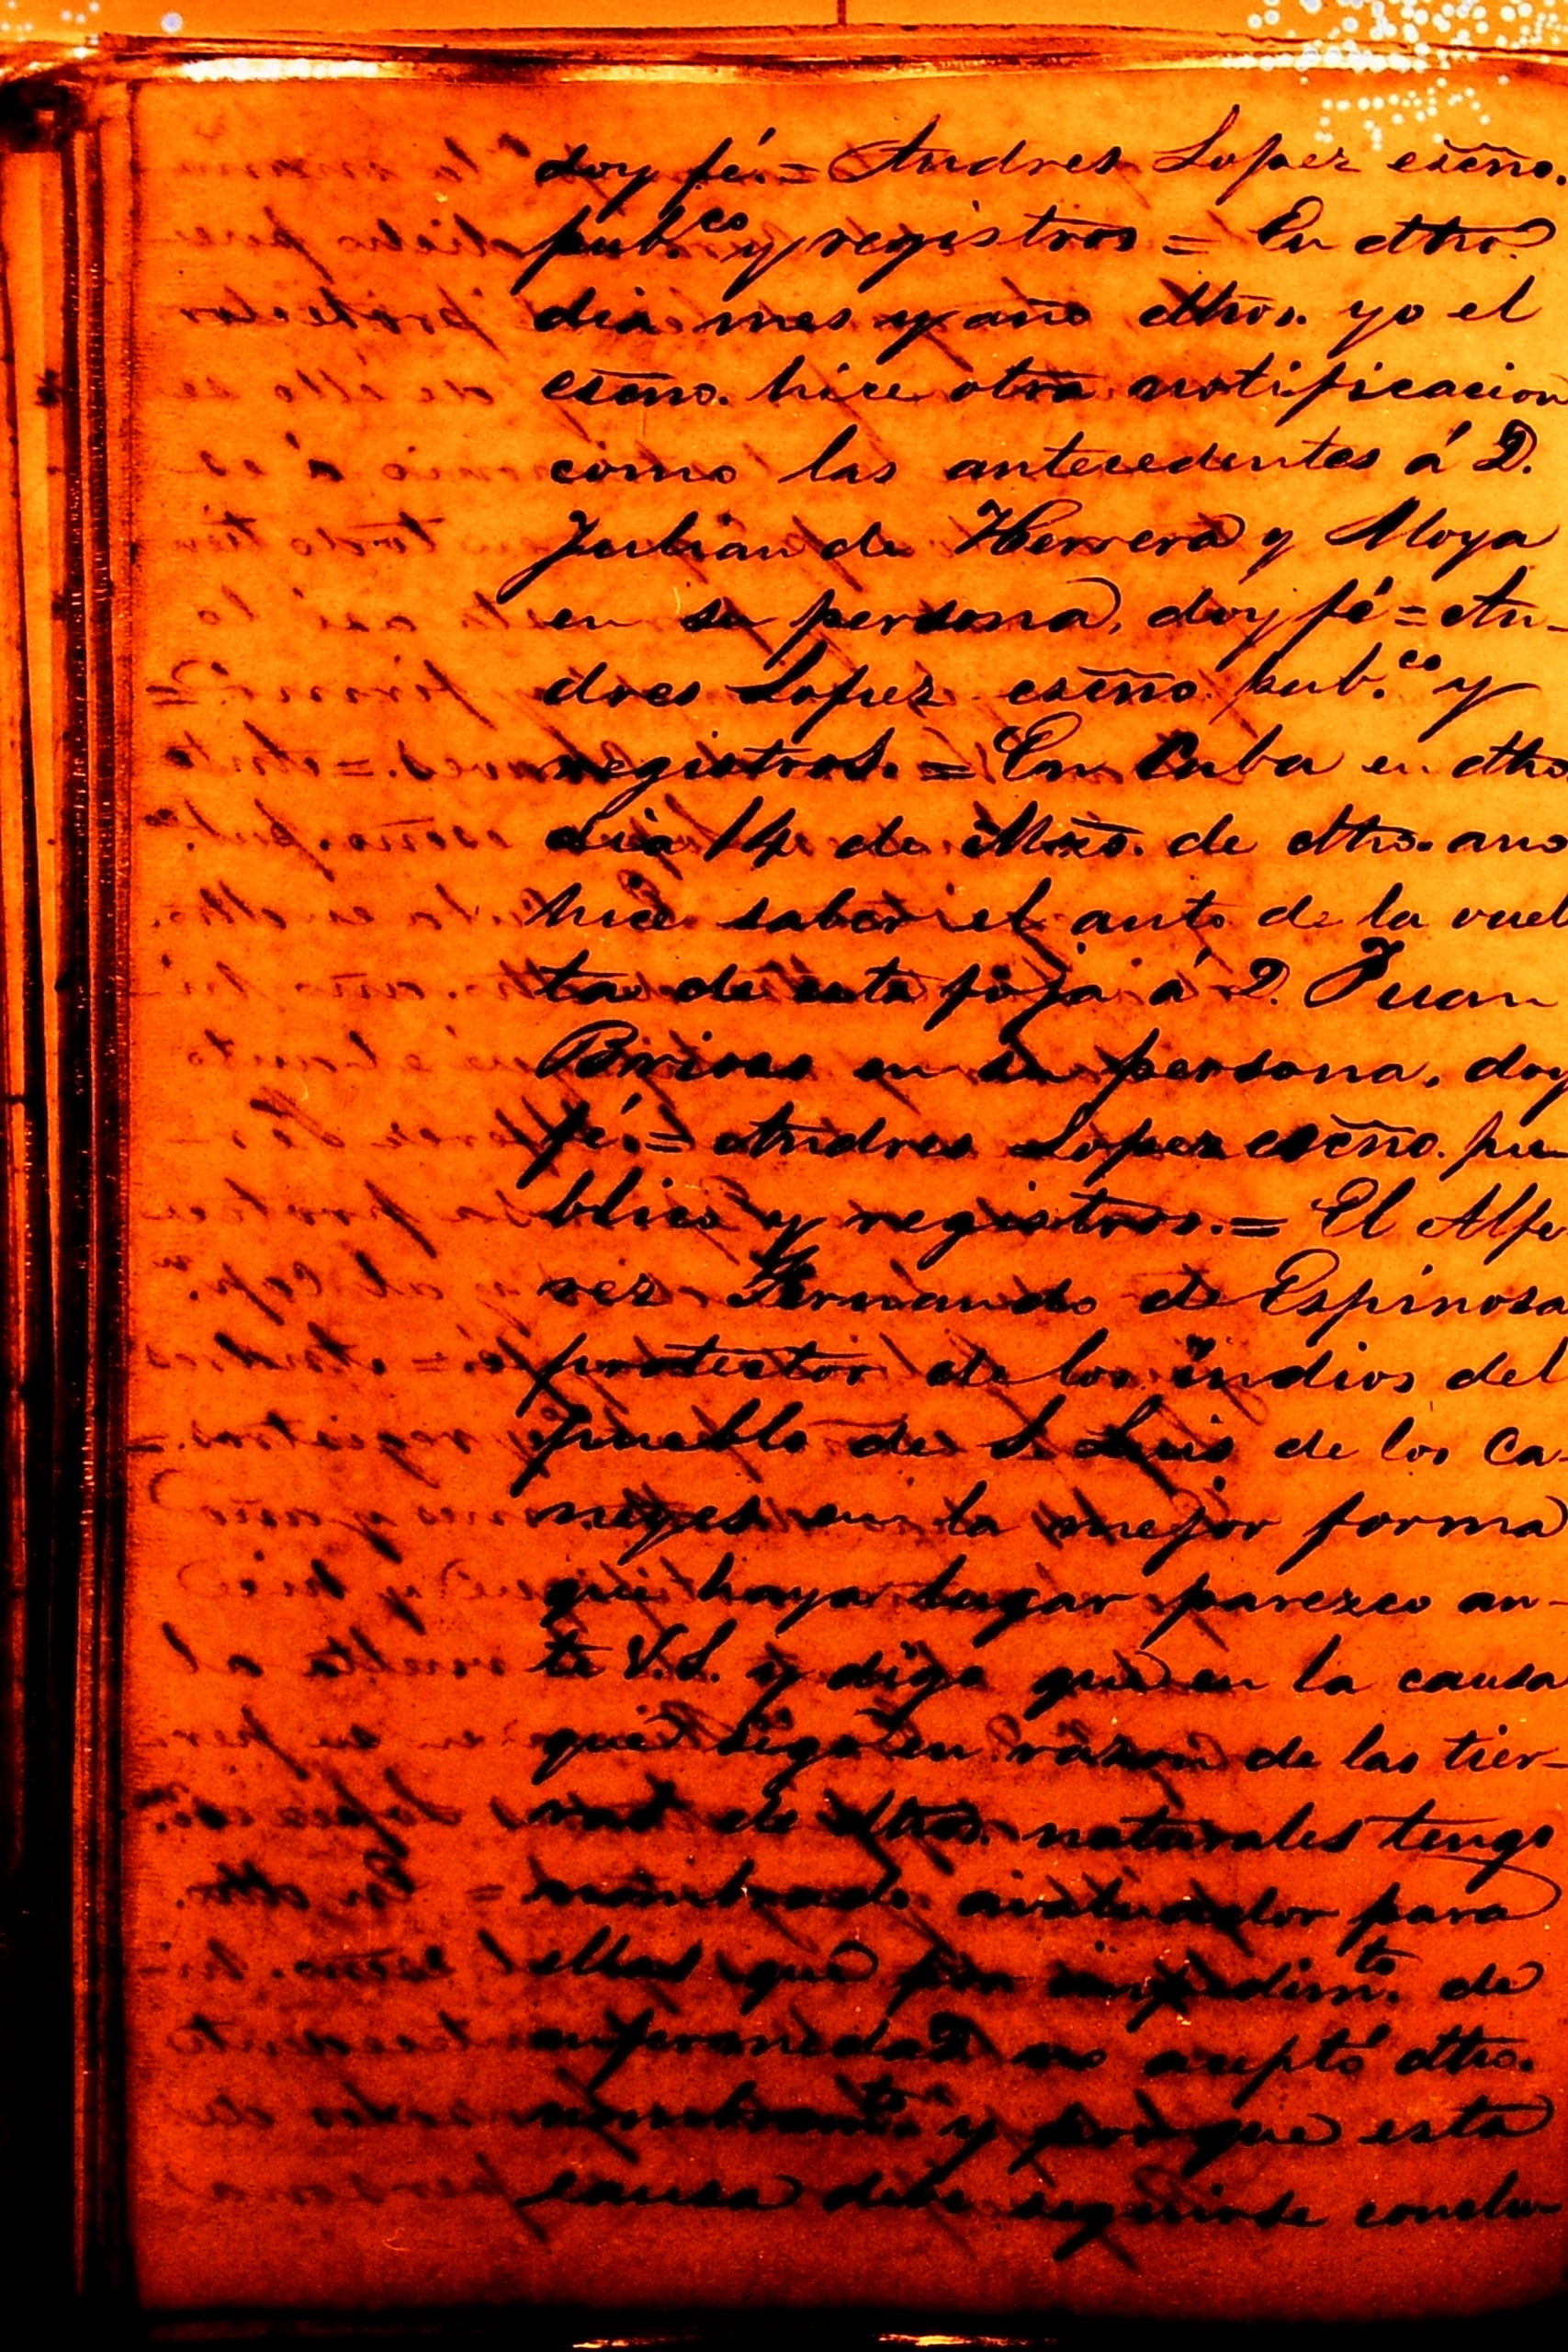 doy fé.= Andres Lopez esc̃no.
pub.co y registros = En dtho.
dia mes y año dthos. yo el
esc̃no. hice otra notificacion
como las antecedentes á D.
Julian de Herrera y Moya
en su persona, doy fé = An-
dres Lopez esc̃no. pub.co y
registros. = En Cuba en dtho
dia 14 de Mzõ. de dtho. ano
hice saber el auto de la vuel
ta de esta foja á D. Juan
en su persona, doy
fé.= Andres Lopez esc̃no. pu
blico y registros.= El Alfe
rez Fernando de Espinosa
protector de los indios del
pueblo de S. Luis de los Ca-
neyes en la mejor forma
que haya lugar parezco an-
te V.S. y digo que en la causa
que sigo en razon de las tier-
ras de dthos. naturales tengo
nombrado avaluador para
ellas que por impedim.to de
enfermedad no aceptó dtho.
nombram.to y porque esta
causa debe seguirse conclu